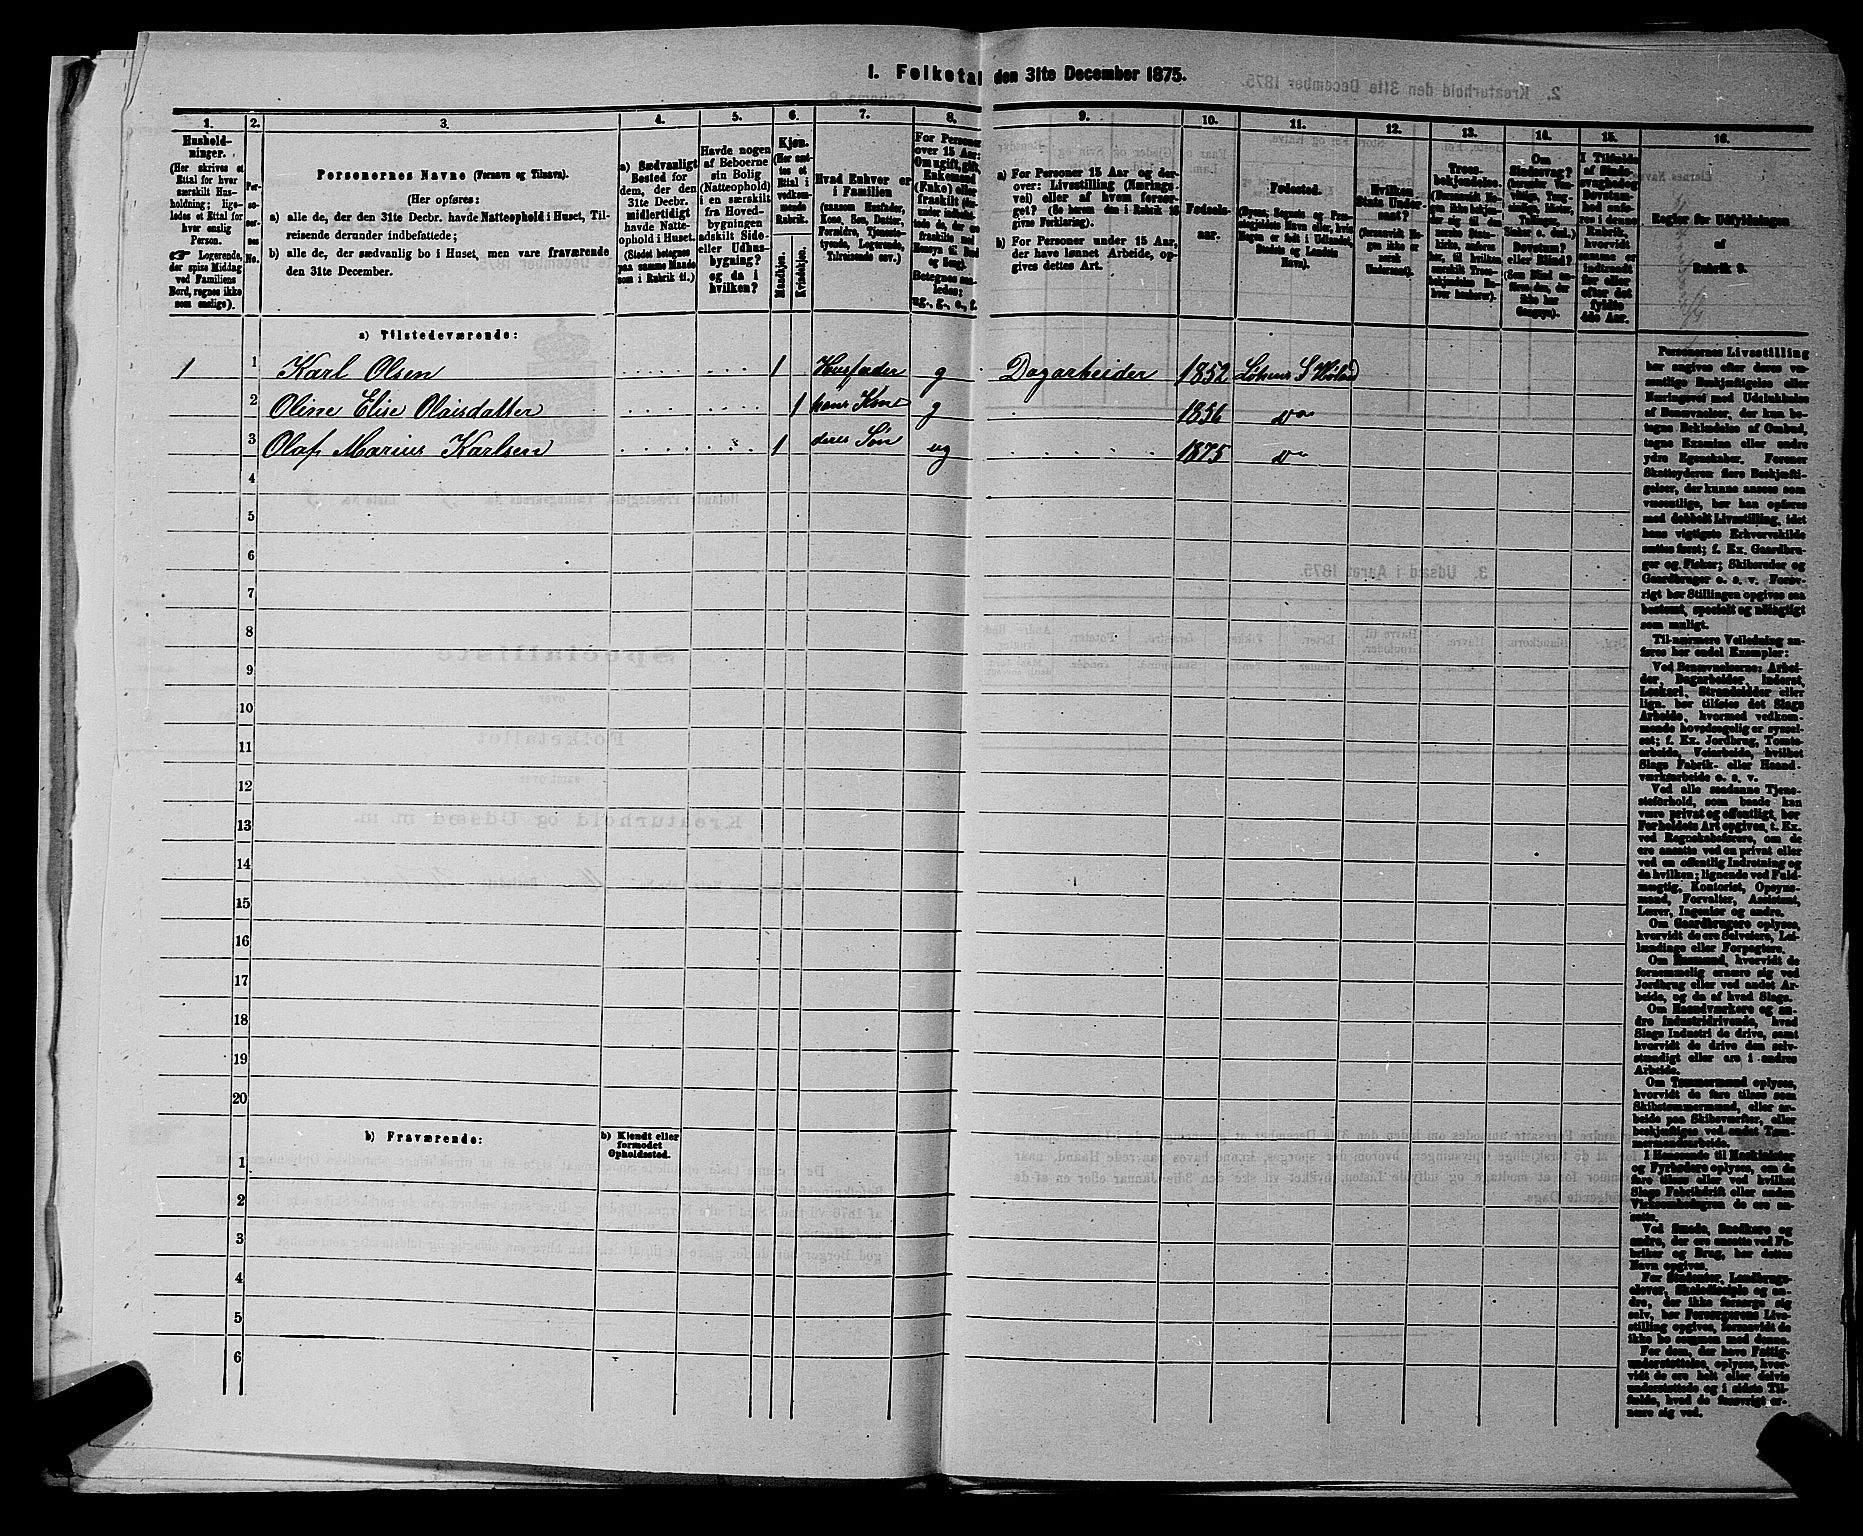 1. Folketal den 31te December 1875.
1. 2. 3. 4. 5. 6. 7. 8. 9. 10. 11. 12. 13. 14. 15. 16.
Hushold-
ninger.
(Her skrives et
Ettal for hver
særskilt Hus-
holdning; lige-
ledes et Ettal for
hver enslig
Person.
☞ Logerende,
der spise Middag
ved Familiens
Bord, regnes ikke
som enslige).
Per-
so-
ner-
nes
No.
Personernes Navne (Fornavn og Tilnavn).
(Her opføres:
a) alle de, der den 31te Decbr. havde Natteophold i Huset, Til-
reisende derunder indbefattede;
b) alle de, der sædvanlig bo i Huset, men vare fraværende
den 31te December.
a) Sædvanligt
Bosted for
dem, der den
31te Decbr.
midlertidigt
havde Natte-
ophold i Huset.
(Stedet betegnes
paa samme Maade
som i Rubrik 11.)
Havde nogen
af Beboerne
sin Bolig
(Natteophold)
i en særskilt
fra Hoved-
bygningen
adskilt Side-
eller Udhus-
bygning?
og da i
hvilken?
Kjøn.
(Her sæt-
tes et
Ettal i
vedkom-
mende
Rubrik.
Mandkjøn.
Kvindekjøn.
Hvad Enhver er
i Familien
(saasom Husfader,
Kone, Søn, Datter,
Forældre, Tjeneste-
tyende, Logerende,
Tilreisende osv.)
For Personer
over 15 Aar:
Om ugift, gift,
Enkemand
(Enke) eller
fraskilt
Betegnes saa-
ledes:
ug., g., e., f.
a) For Personer 15 Aar og der-
over: Livsstilling (Nærings-
vei) eller af hvem forsør-
get? (Se herom den i Rubrik 16
givne Forklaring).
b) For Personer under 15 Aar,
der have lønnet Arbeide, op-
gives dettes Art.
Fødsels-
aar.
Fødested.
(Byens, Sognets og Præ-
stegjeldets Navn eller, hvis
Nogen er født i Udlandet,
Stedets og Landets
Navn).
Hvilken
Stats Under-
saat?
(forsaavidt No-
gen ikke er
norsk
Undersaat).
Troes-
bekjendelse.
Om
Sindssvag?
Døvstum?
eller Blind?
Regler for Udfyldningen
af
Rubrik 9.
a) Tilstedeværende:
1 1 Karl Olsen 1 Husfader g Dagarbeider 1852
2 Oline Elise Olaisdatter 1 hans Kone g 1856 do
3 Olaf Marius Karlsen 1 deres Søn ug 1875 do
4
5
6
7
8
9
10
11
12
13
14
15
16
17
18
19
20
b) Fraværende:
b) Kjendt eller
formodet
Opholdssted.
1
2
3
4
5
6
Personernes Livsstilling
bør angives efter deres væ-
sentlige Beskjæftigelse eller
Næringsvei med Udelukkelse
af Benævnelser, der kun be-
tegne Beklædelse af Ombud,
tagne Examina eller andre
ydre Egenskaber. Forener
Skatteyderen flere Beskjæfti-
gelser, der kunne ansees som
væsentlige, bør han opføres
med dobbelt Livsstilling, idet
hans vigtigste Erhvervskilde
sættes først; f. Ex. Gaardbru-
ger og Fisker; Skibsreder og
Gaardbruger o. s. v. Forøv-
rigt bør Stillingen opgives saa
bestemt, specielt og nøiagtigt
som muligt.
Til nærmere Veiledning an-
føres her endel Exempler:
Ved Benævnelserne: Arbei-
der, Dagarbeider, Inderst,
Løskarl, Strandsidder eller
lign. bør tilføies det Slags
Arbeide, hvormed vedkom-
mende hovedsagelig er syssel-
sat; f. Ex. Jordbrug, Tomte-
arbeide, Veiarbeide, hvilket
Slags Fabrik- eller Haand-
værksarbeide o. s. v.
Ved alle saadanne Tjene-
steforhold, som baade kan
være privat og offentligt, bør
Forholdets Art opgives, t. Ex.
ved Regnskabsførere, om de
ere ansatte ved en privat eller
ved en offentlig Indretning og
da hvilken; lignende ved Fuld-
mægtig, Kontorist, Opsyns-
mand, Forvalter, Assistent,
Lærer, Ingeniør og andre.
Om Gaardbrugere oplyses,
hvorvidt de ere Selveiere, Lei-
lændinge eller Forpagtere.
Om Husmænd, hvorvidt de
fornemmelig ernære sig ved
Jordbrug eller ved andet Ar-
beide, og da af hvad Slags.
Om Haandværkere og an-
dre Industridrivende, hvad
Slags Industri de drive, samt
hvorvidt de drive den selv-
stændigt eller ere i andres
Arbeide.
Om Tømmermænd oplyses,
hvorvidt de fare tilsøs som
Skibstømmermænd, eller ar-
beide paa Skibsværfter, eller
beskjæftiges ved andet Tøm-
mermandsarbeide.
I Henseende til Maskinister
og Fyrbødere oplyses, om de
fare tilsøs eller ved hvilket
Slags Fabrikdrift eller anden
Virksomhedsgren de ere an-
satte.
Ved Smede, Snedkere og
andre, der ere ansatte ved Fa-
briker og Brug, bør dettes
Navn opgives.
For Studenter, Landbrugs-
elever, Skoledisciple og an-
dre, der ikke forsørge sig
selv, bør Forsørgerens Livs-
stilling opgives, forsaavidt de
ikke bo sammen med denne.
For dem, der have Fattig-
understøttelse, oplyses, hvor-
vidt de ere helt eller delvis
understøttede og i sidste Til-
fælde, hvad de forøvrigt er-
nære sig ved.